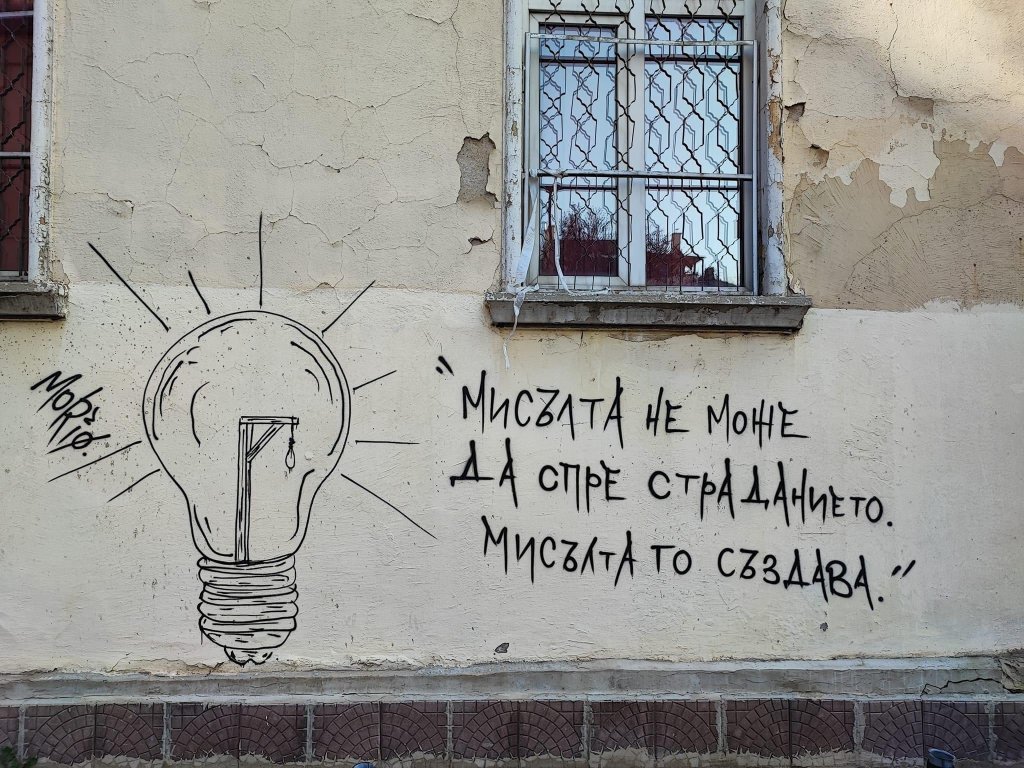 "МИСЪЛТА НЕ МОЖЕ
ДА СПРЕ СТРАДАНИЕТО.
МИСЪЛТА ТО СЪЗДАВА."